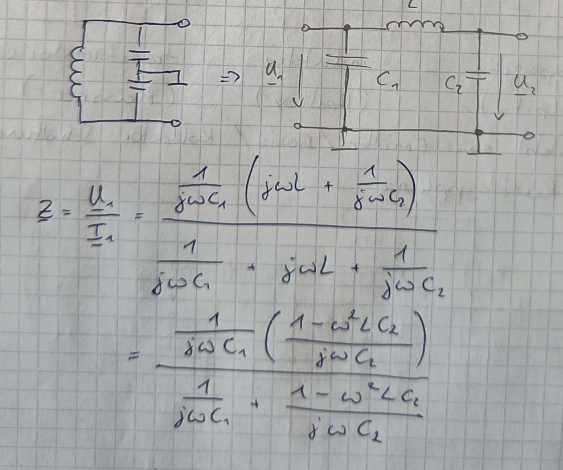 L
=> U₁ C₁ C₂ U₂
Z = U₁/I₁ = (1/(jωC₁) (jωL + 1/(jωC₂))) / (1/(jωC₁) + jωL + 1/(jωC₂))
= (1/(jωC₁) ((1-ω²LC₂)/(jωC₂))) / (1/(jωC₁) + (1-ω²LC₂)/(jωC₂))